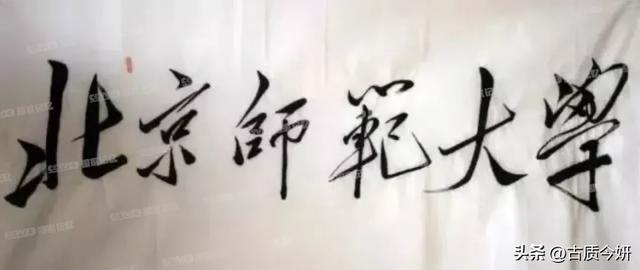 北京師範大學
头条 @古质今妍